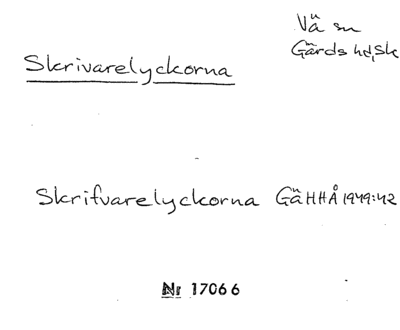 Vä sn
Gärds hd, Sk
Skrivarelyckorna
Skrifvarelyckorna GäHHÅ 1949:42
Nr 17066